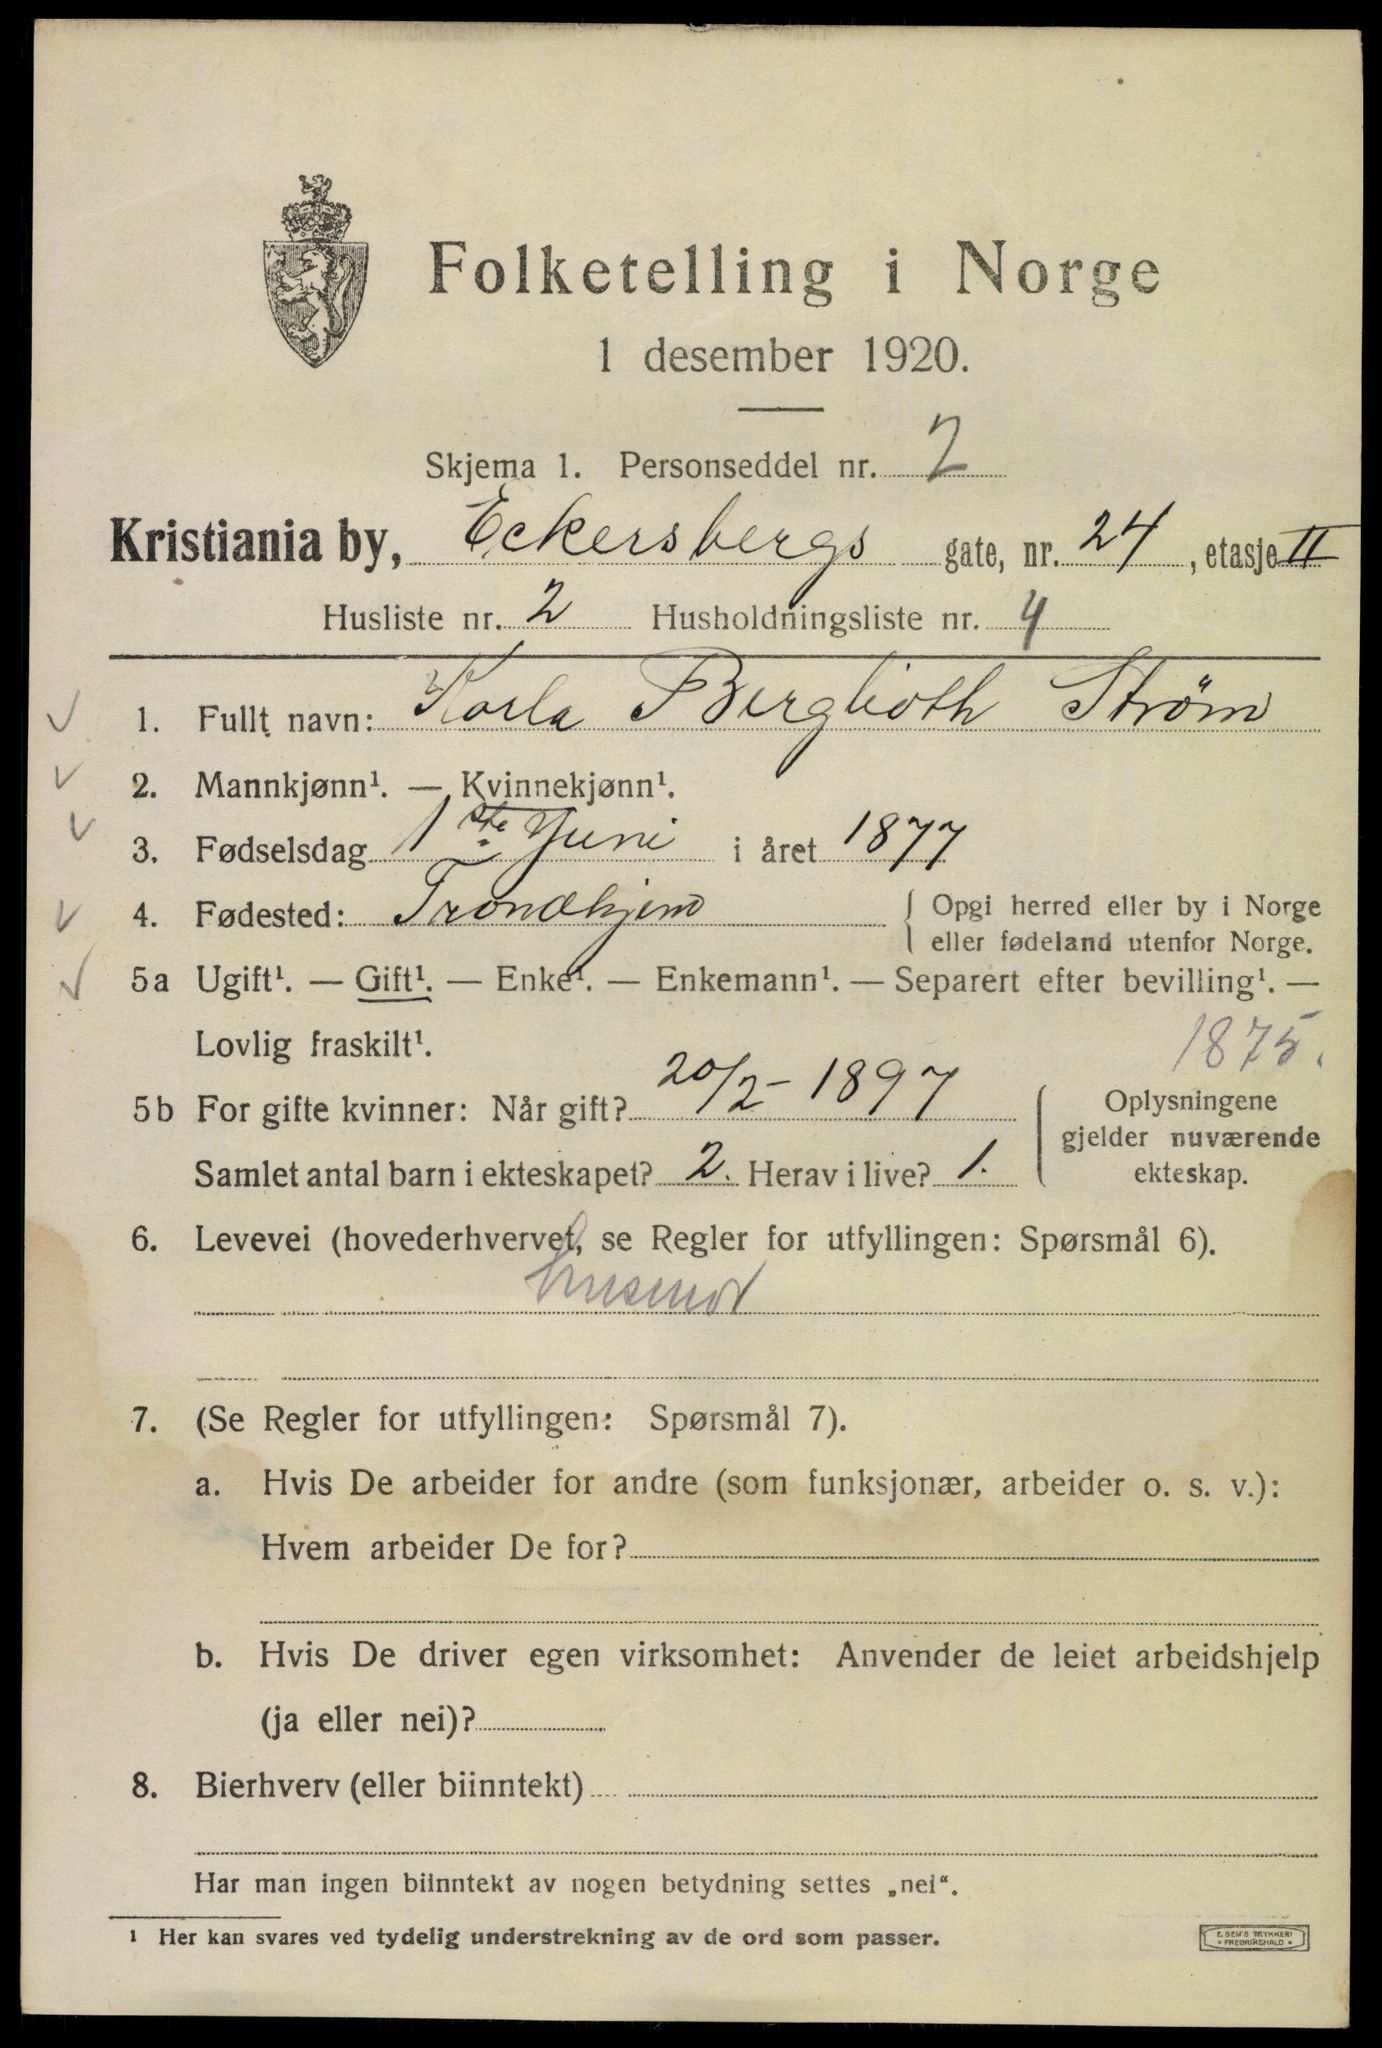 Folketelling i Norge
1 desember 1920.
Skjema 1. Personseddel nr. 2
Kristiania by, Eckersbergs gate, nr. 24, etasje II
Husliste nr. 2 Husholdningsliste nr. 4
1. Fullt navn: Karla Berglioth Strøm
2. Mannkjønn¹. — Kvinnekjønn¹.
3. Fødselsdag 1ste Juni i året 1877
4. Fødested: Trondhjem { Opgi herred eller by i Norge
eller fødeland utenfor Norge.
5a Ugift¹. — Gift¹. — Enke¹. — Enkemann¹. — Separert efter bevilling¹. —
Lovlig fraskilt¹.
1875.
5b For gifte kvinner: Når gift? 20/2 - 1897
Samlet antal barn i ekteskapet? 2. Herav i live? 1.
{ Oplysningene
gjelder nuværende
ekteskap.
6. Levevei (hovederhvervet, se Regler for utfyllingen: Spørsmål 6).
husmor
7. (Se Regler for utfyllingen: Spørsmål 7).
a. Hvis De arbeider for andre (som funksjonær, arbeider o. s. v.):
Hvem arbeider De for?
b. Hvis De driver egen virksomhet: Anvender de leiet arbeidshjelp
(ja eller nei)?
8. Bierhverv (eller biinntekt)
Har man ingen biinntekt av nogen betydning settes „nei“.
¹ Her kan svares ved tydelig understrekning av de ord som passer.
E. SEM'S TRYKKERI
* FREDRIKSHALD *